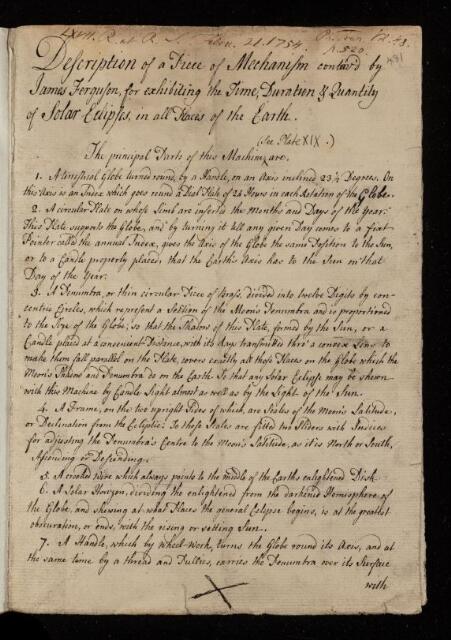 LXVII. R. at R. S. Nov. 21. 1754.
Description of a Piece of Mechanism contriv'd by
James Ferguson, for exhibiting the Time, Duration & Quantity
of Solar Eclipses, in all Places of the Earth.
(See Plate XIX.)
The principal Parts of this Machine are.
1. A terrestrial Globe turned round, by a Handle, on an Axis inclined 23½ Degrees. On
this Axis is an Index which goes round a Dial Plate of 24 Hours in each Rotation of the Globe.
2. A circular Plate on whose Limb are inserted the Months and Days of the year.
This Plate supports the Globe, and by turning it till any given Day comes to a fixt
Pointer called the annual Index, gives the Axis of the Globe the same Position to the Sun,
or to a Candle properly placed, that the Earth's Axis has to the Sun on that
Day of the Year.
3. A Penumbra, or thin circular Piece of Brass, divided into twelve Digits by con-
centric Circles, which represent a Section of the Moon's Penumbra, and is proportioned
to the Size of the Globe; so that the Shadow of this Plate, formed by the Sun, or a
Candle placed at a convenient Distance, with its Rays transmitted thro' a convex Lens to
make them fall parallel on the Plate, covers exactly all those Places on the Globe which the
Moon's Shadow and Penumbra do on the Earth: So that any Solar Eclipse may be shewn
with this Machine by Candle Light almost as well as by the Light of the Sun.
4. A Frame, on the two upright Sides of which, are Scales of the Moon's Latitude,
or Declination from the Ecliptic. To these Scales are fitted two Sliders with Indices
for adjusting the Penumbra's Centre to the Moon's Latitude, as it is North or South,
Ascending or Descending.
5. A crooked Wire which always points to the middle of the Earth's enlightened Disk.
6. A Solar Horizon, dividing the enlightened from the darkened Hemisphere of
the Globe, and shewing at what Places the general Eclipse begins, is at the greatest
obscuration, or ends, with the rising or setting Sun.
7. A Handle, which by wheel-work, turns the Globe round its Axis, and at
the same time by a thread and Pullies, carries the Penumbra over its Surface
with